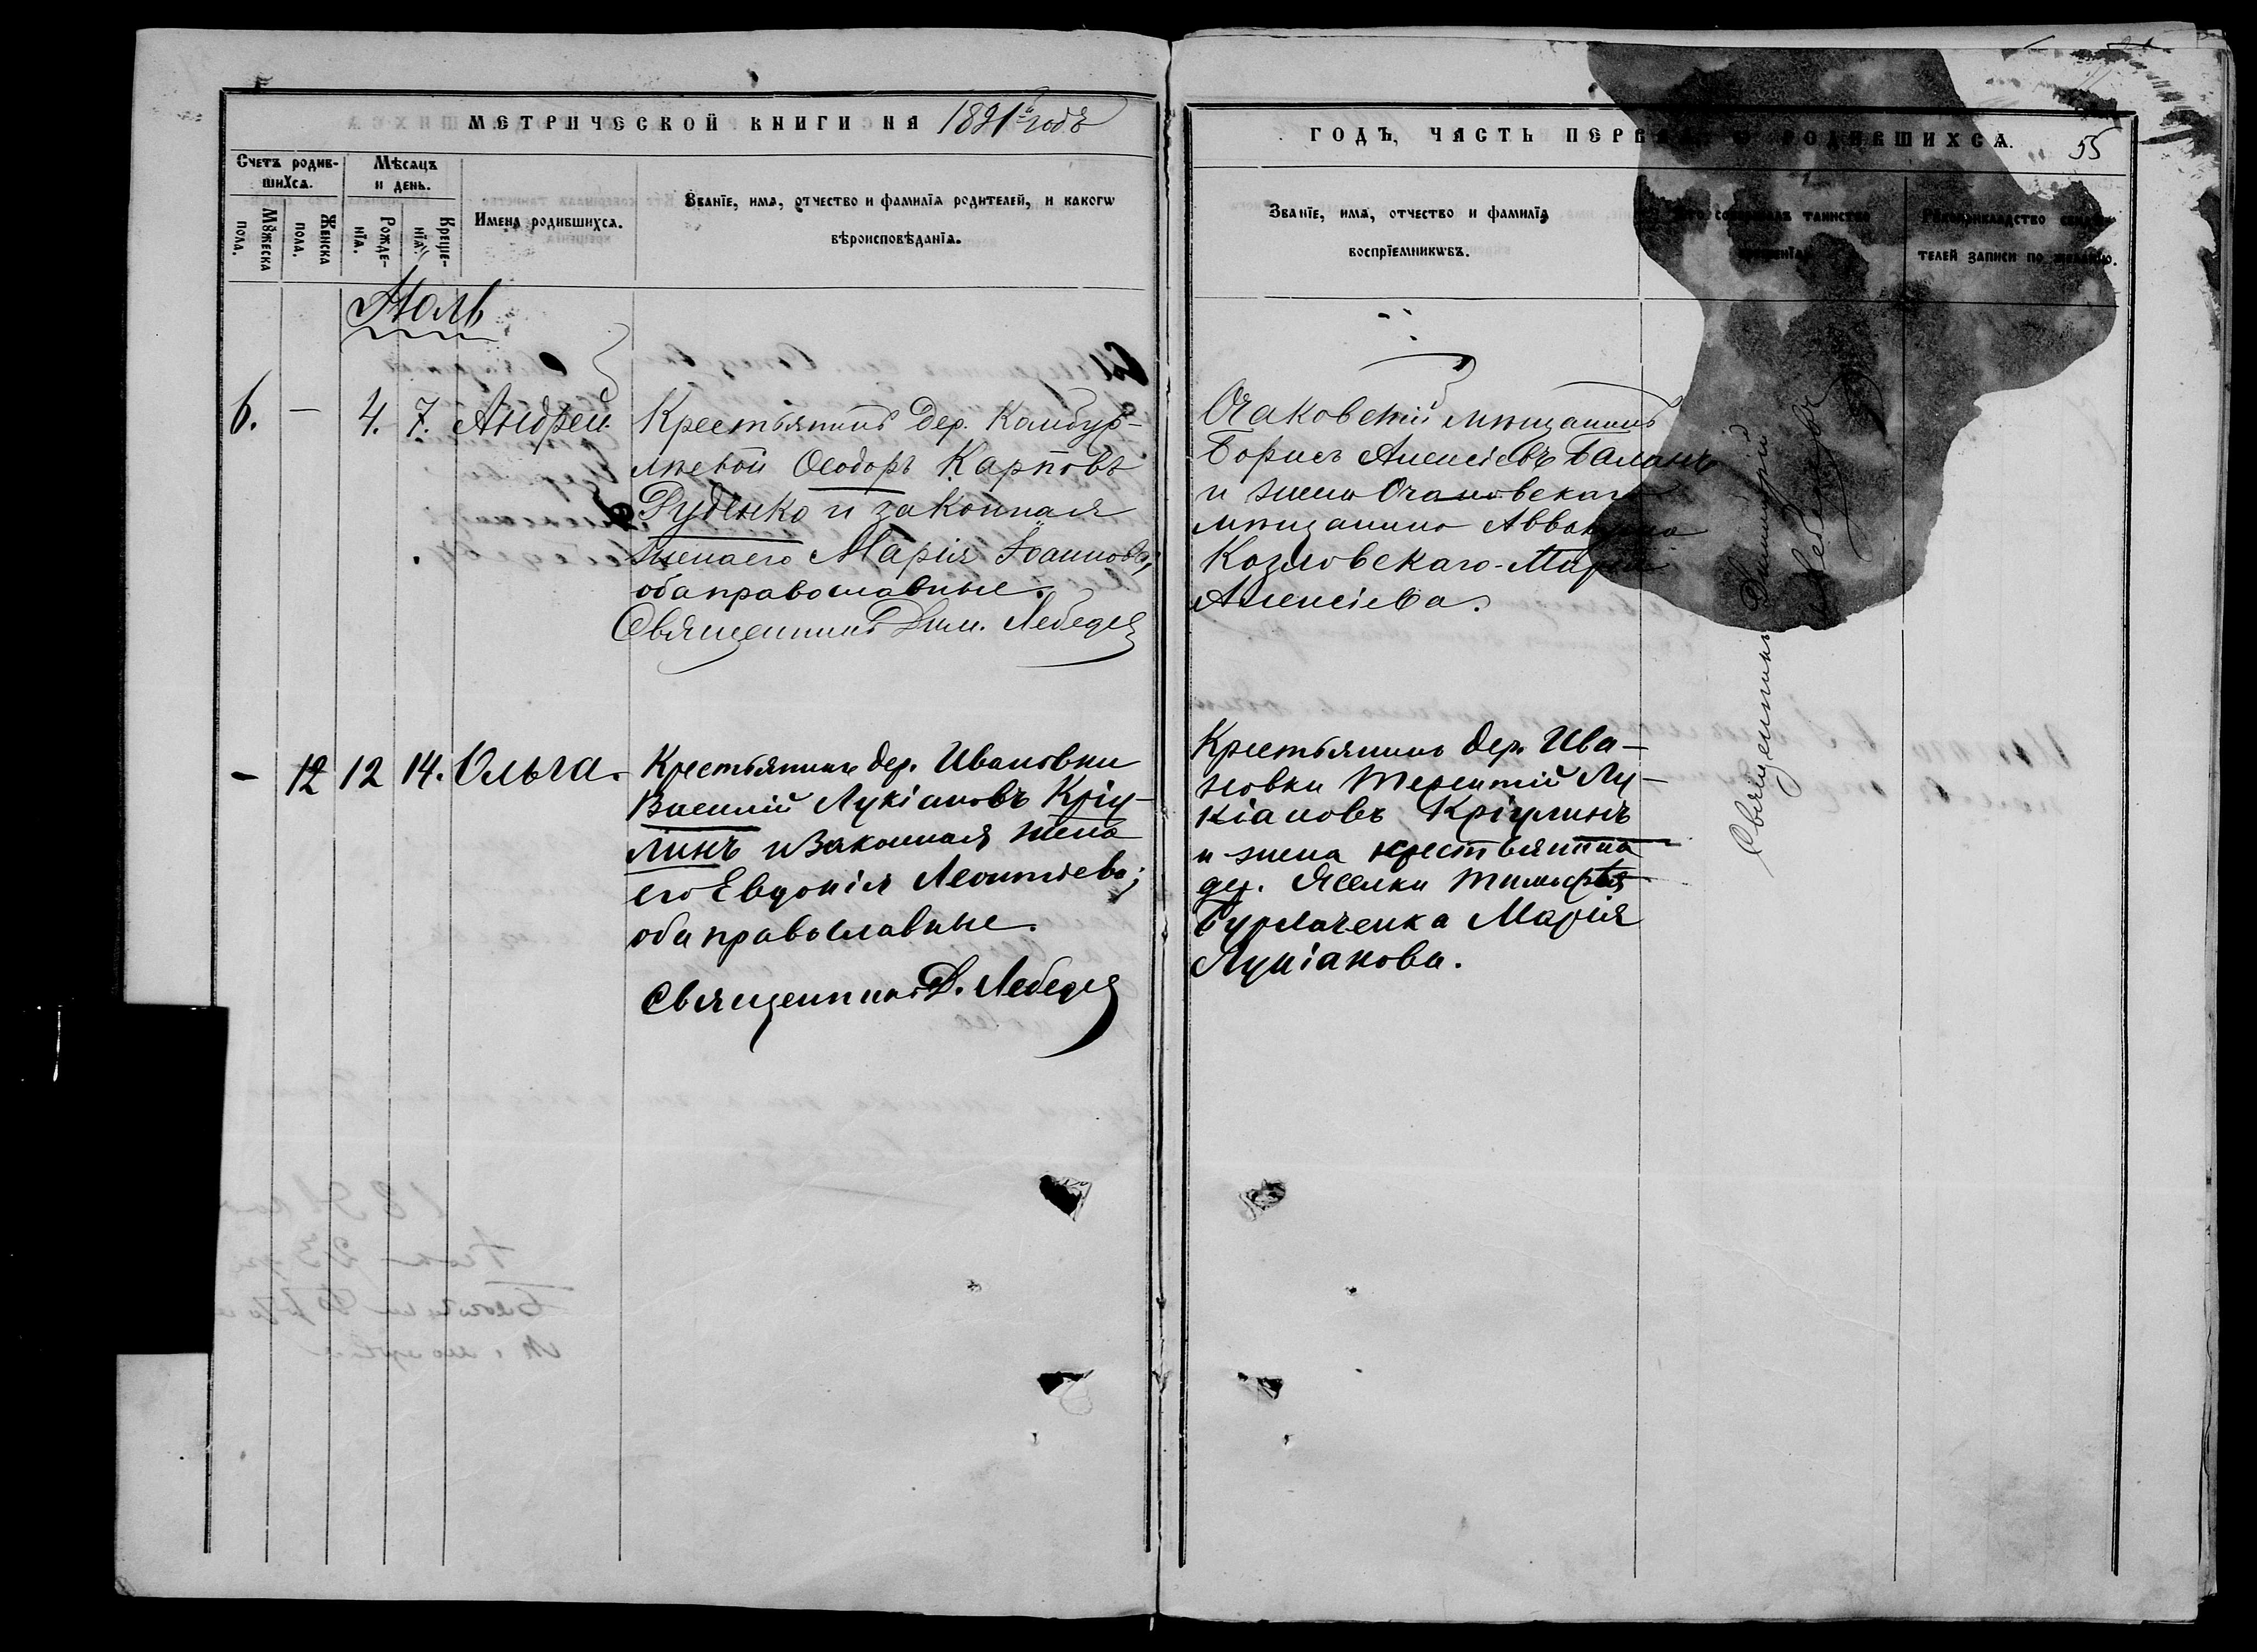 МЕТРИЧЕСКОЙ КНИГИ НА 1891й годъ
Счетъ родив-
шихся.
Мѣсяцъ
и день.
Мꙋжеска
пола.
Женска
пола.
Рожде-
нїа.
Креще-
нїа.
Имена родившихся.
Званїе, имя, отчество и фамилїя родителей, и какогѡ
вѣроисповѣданїя.
Июль
6. — 4. 7. Андрей.
Крестьянинъ дер. Камбур-
лѣевой Ѳеодоръ Карповъ
Руденко и законная
жена его Марія Іоаннова,
оба православные.
Священникъ Дим. Лебедев
- 12 12 14. Ольга.
Крестьянинъ дер. Ивановки
Василій Лукіановъ Кріу-
линъ и законная жена
его Евдокія Леонтіева;
оба православные.
Священникъ Д. Лебедев
ГОДЪ, ЧАСТЬ ПЕРВАЯ, О РОДИВШИХСЯ.
55
Званїе, имя, отчество и фамилїя
воспрїемникѡвъ.
Кто совершалъ таинство
крещенїя.
Рꙋкоприкладство свидѣ-
телей записи по желанїю.
Очаковскій мѣщанинъ
Борисъ Алексіевъ Баланъ
и жена Очаковскаго
мѣщанина Аввакума
Козловскаго - Марія
Алексіева.
Крестьянинъ дер. Ива-
новки Терентій Лу-
кіановъ Кріулинъ
и жена крестьянина
дер. Яселки Тимофея
Бурлаченка Марія
Лукіанова.
Священникъ Димитрій
Лебедевъ